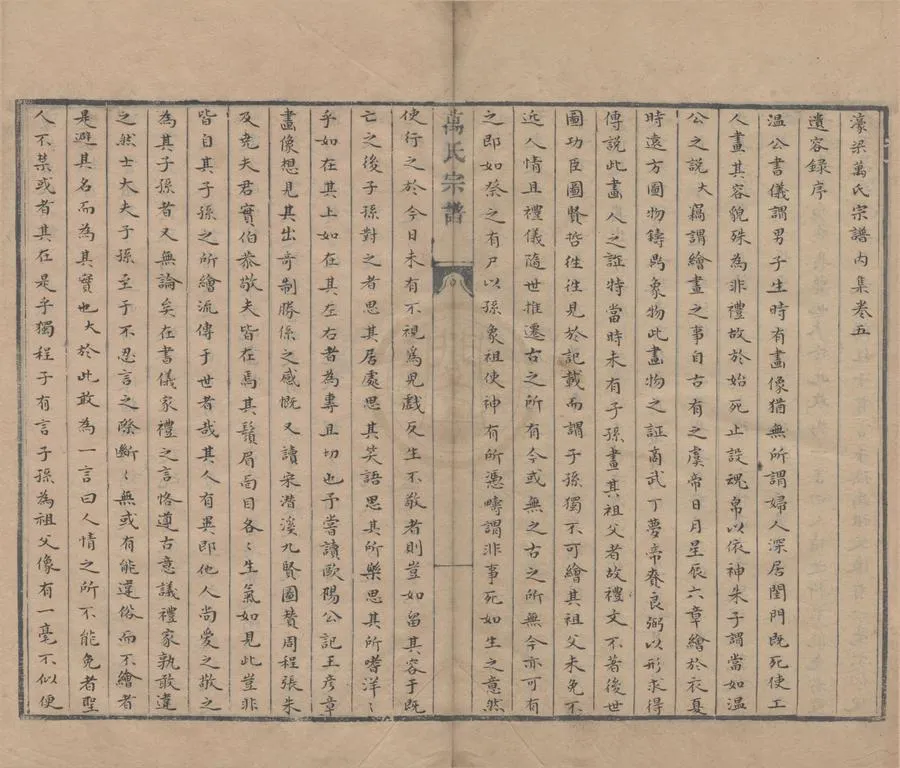 濠梁萬氏宗譜內集卷五
遺容錄序
溫公書儀謂男子生時有畫像猶無所謂婦人深居閨門既死使工
人畫其容貌殊為非禮故於始死止設魂帛以依神朱子謂當如溫
公之說大竊謂繪畫之事自古有之虞帝日月星辰六章繪於衣夏
時遠方圖物鑄鼎象物此畫物之証高武丁夢帝賚良弼以形求得
傅說此畫人之証特當時未有子孫畫其祖父者故禮文不著後世
圖功臣圖賢哲往往見於記載而謂子孫獨不可繪其祖父未免不
近人情且禮儀隨世推遷古之所有今或無之古之所無今亦可有
之即如祭之有尸以孫象祖使神有所憑疇謂非事死如生之意然
萬氏宗譜
使行之於今日未有不視為兒戲反生不敬者則豈如留其容于既
亡之後子孫對之者思其居處思其笑語思其所樂思其所嗜洋〻
乎如在其上如在其左右者為專且切也予嘗讀歐陽公記王彥章
畫像想見其出奇制勝係之感慨又讀宋潛溪九賢圖贊周程張朱
及堯夫君實伯恭敬夫皆在焉其鬚眉面目各〻生氣如見此豈非
皆自其子孫之所繪流傳于世者哉其人有異即他人尚愛之敬之
為其子孫者又無論矣在書儀家禮之言恪遵古意議禮家孰敢違
之然士大夫子孫至于不忍言之際斷〻無或有能違俗而不繪者
是避其名而為其實也大於此敢為一言曰人情之所不能免者聖
人不禁或者其在是乎獨程子有言子孫為祖父像有一毫不似便